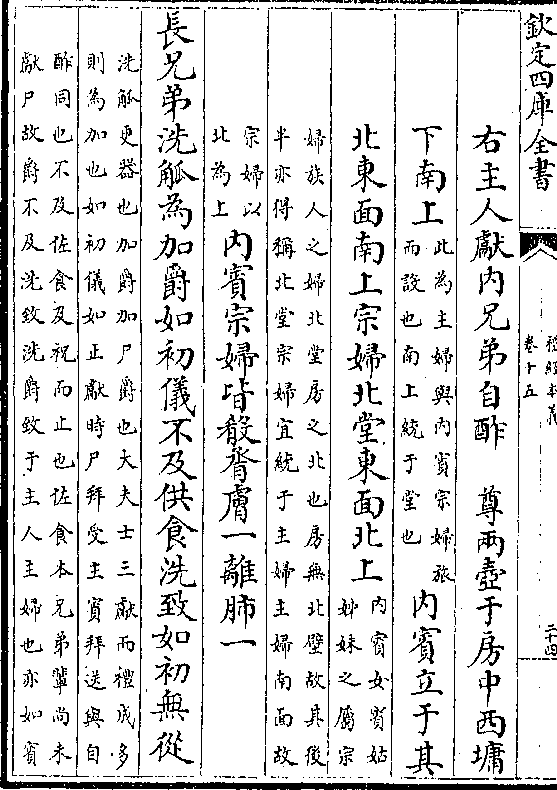 欽定四庫全書
禮經本義
卷十五
二十四
右主人獻內兄弟自酢　尊兩壺于房中西墉
下南上此為主婦與內賓宗婦旅而設也南上統于堂也內賓立于其
北東面南上宗婦北堂東面北上內賓女賓姑姊妹之屬宗
婦族人之婦北堂房之北也房無北壁故其後半亦得稱北堂宗婦宜統于主婦主婦南面故
宗婦以北為上內賓宗婦皆殽脀膚一離肺一
長兄弟洗觚為加爵如初儀不及供食洗致如初無從
洗觚更器也加爵加尸爵也大夫士三獻而禮成多則為加也如初儀如正獻時尸拜受主賓拜送與自
酢同也不及佐食及祝而止也佐食本兄弟輩尚未獻尸故爵不及洗致洗爵致于主人主婦也亦如賓